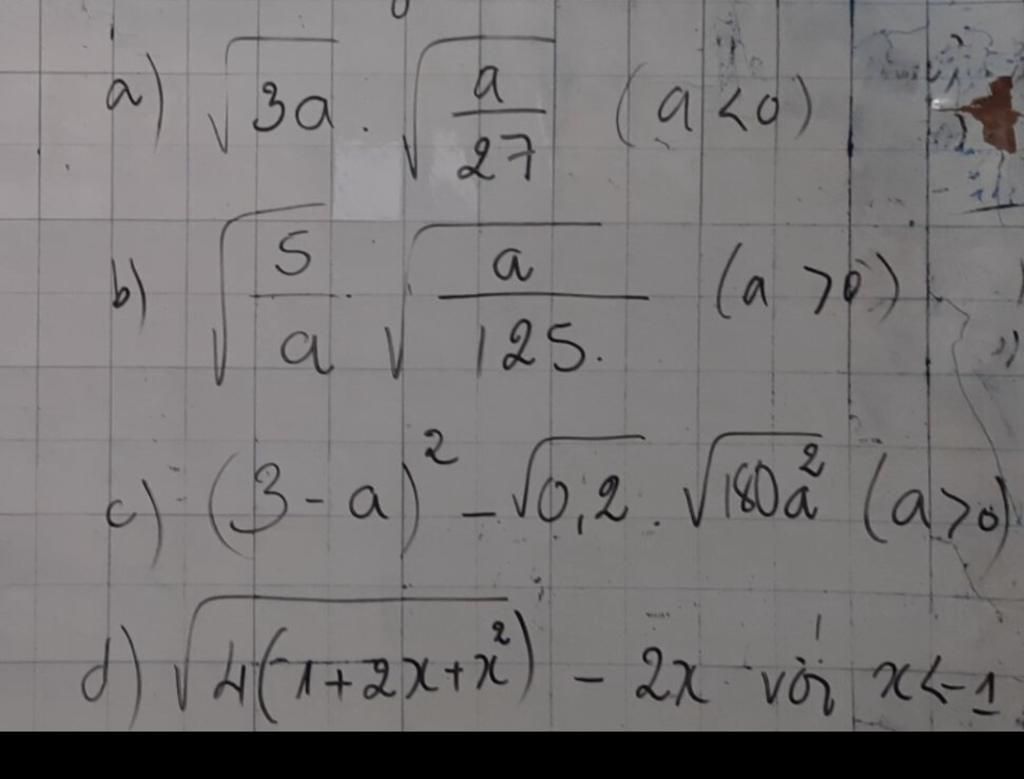 a) √3a . √a/27 (a < 0)
b) √5/a . √a/125 . (a > 0)
c) (3 - a)² - √0,2 . √180a² (a > 0)
d) √4(1 + 2x + x²) - 2x với x < -1